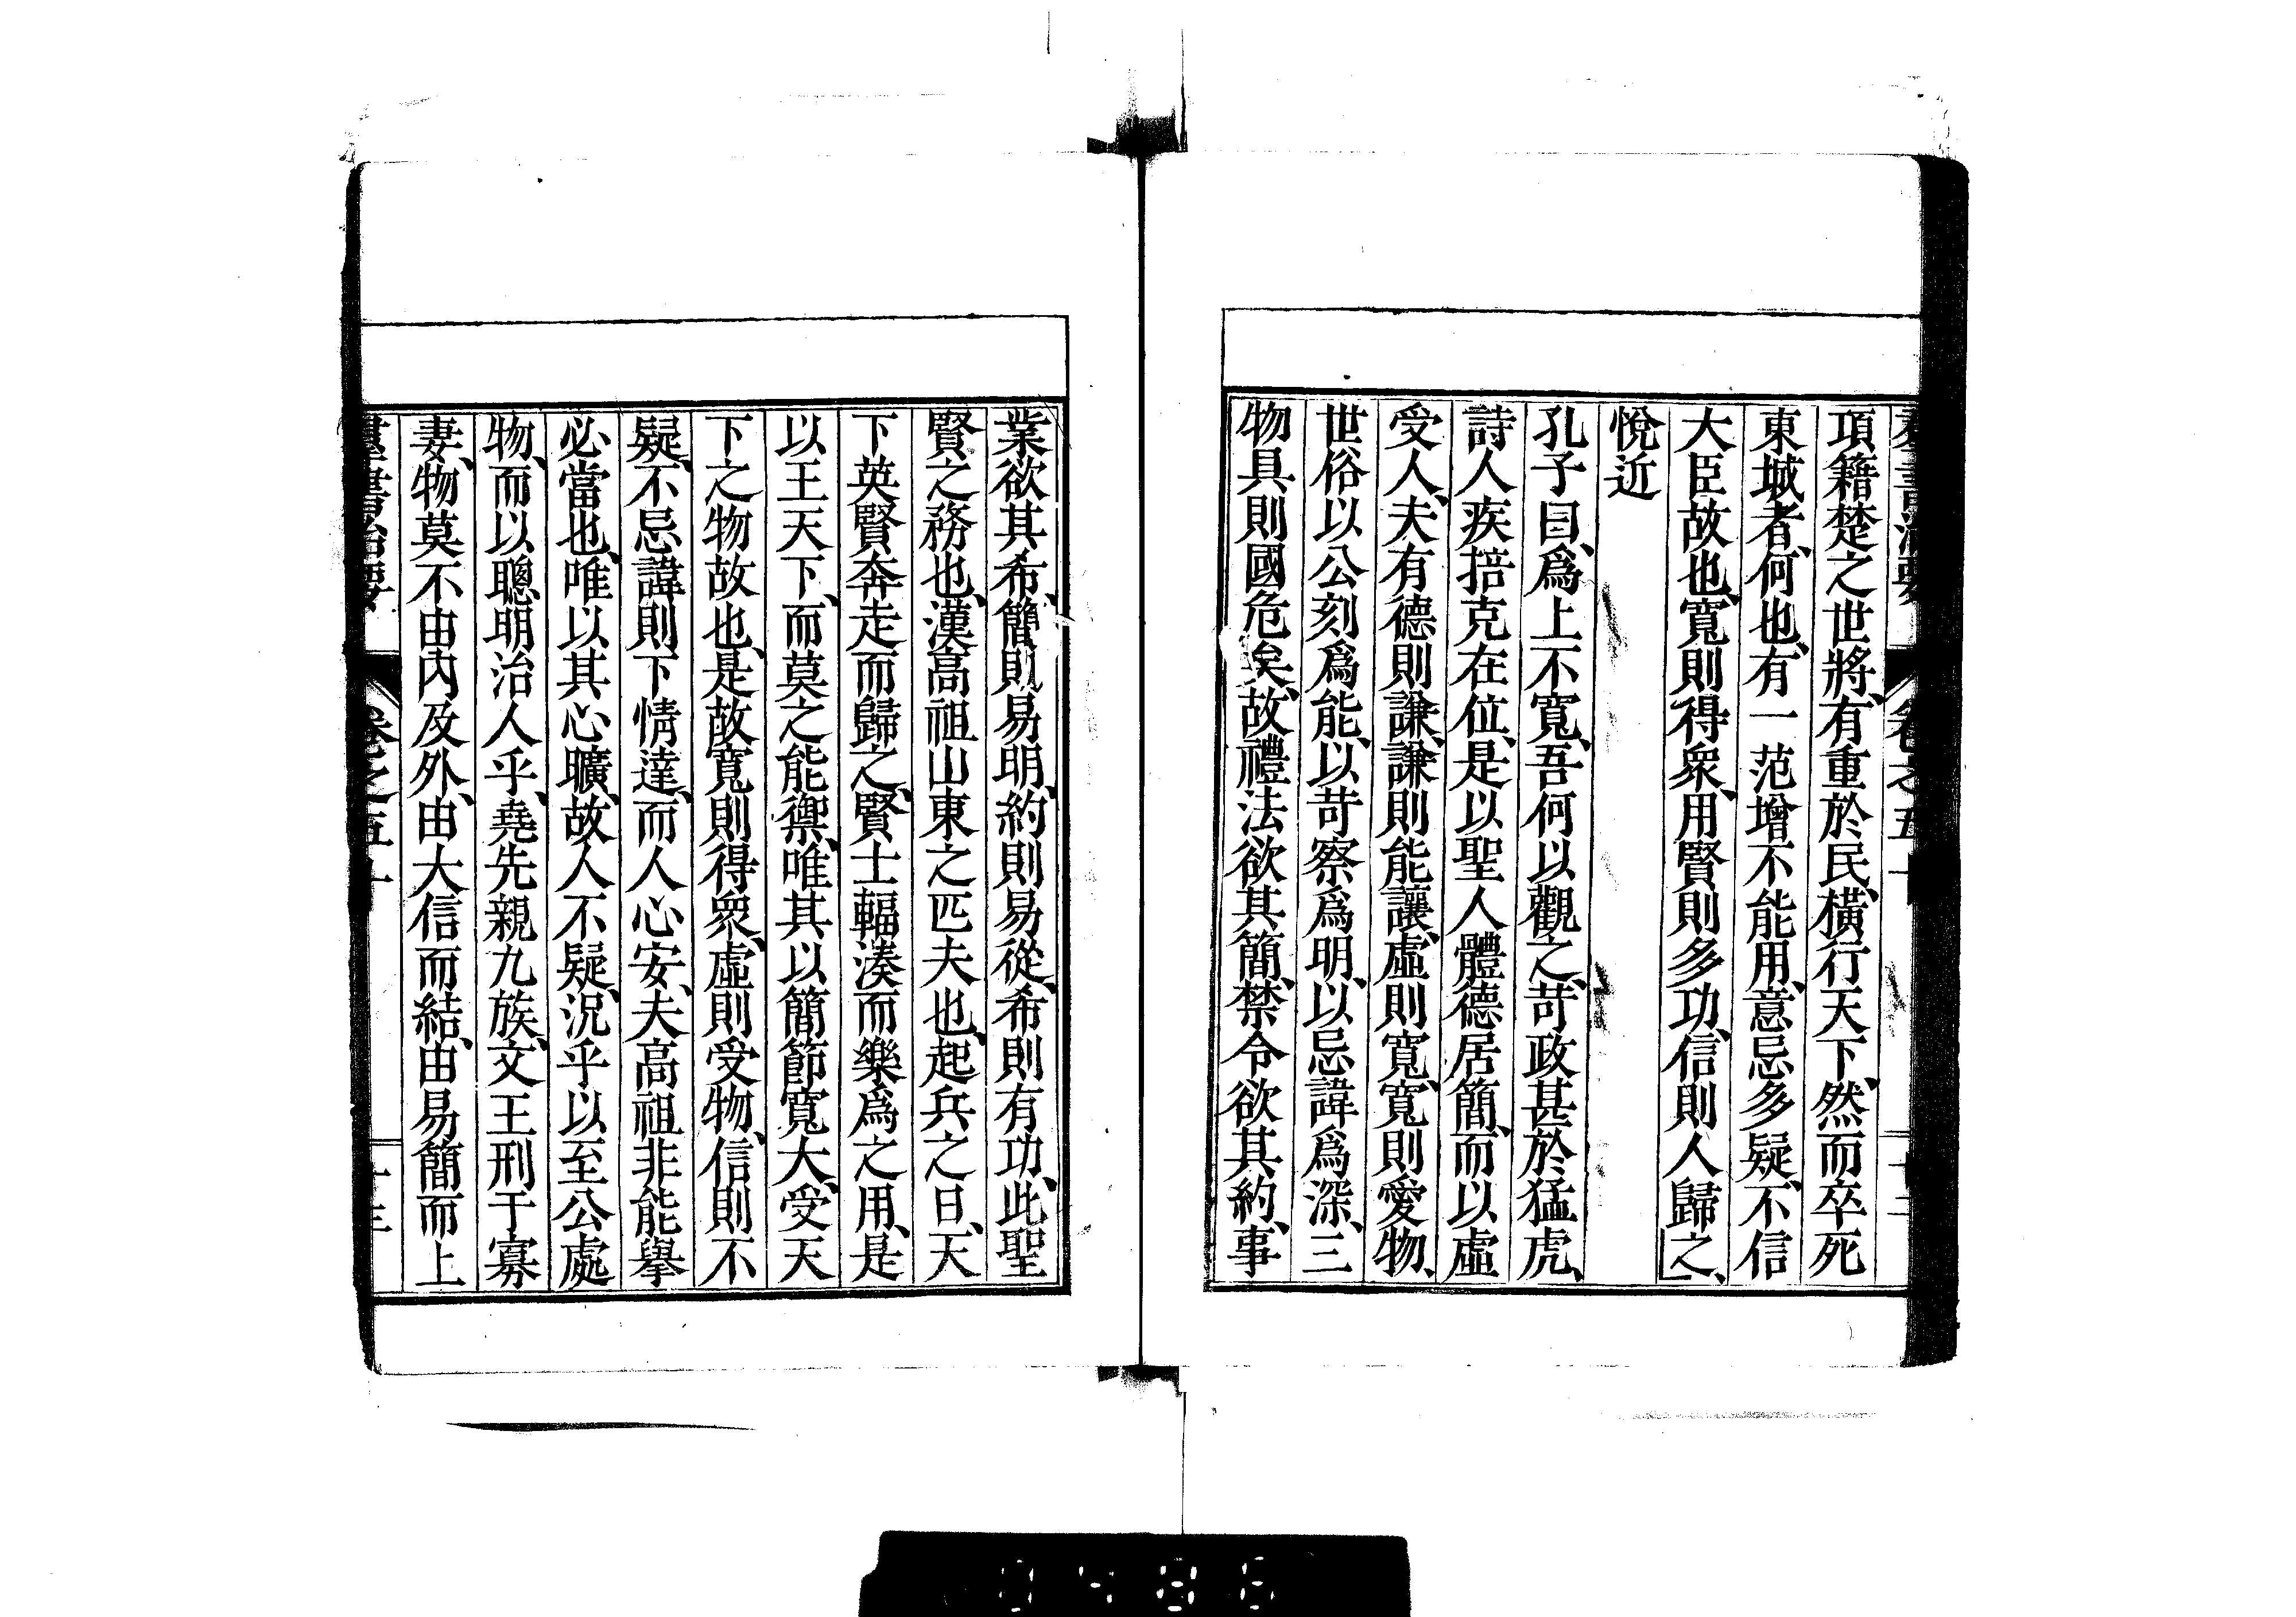 項籍楚之世將、有重於民、橫行天下、然而卒死
東城者、何也、有一范增不能用、意忌多疑、不信
大臣故也、寬則得衆、用賢則多功、信則人歸之、」
悅近
孔子曰、爲上不寬、吾何以觀之、苛政甚於猛虎、
詩人疾掊克在位、是以聖人體德居簡、而以虛
受人、夫有德則謙、謙則能讓、虛則寬、寬則愛物、
世俗以公刻爲能、以苛察爲明、以忌諱爲深、三
物具則國危矣、故禮法欲其簡、禁令欲其約、事
業欲其希、簡則易明、約則易從、希則有功、此聖
賢之務也、漢高祖山東之匹夫也、起兵之日、天
下英賢奔走而歸之、賢士輻湊而樂爲之用、是
以王天下、而莫之能禦、唯其以簡節寬大、受天
下之物故也、是故寬則得衆、虛則受物、信則不
疑、不忌諱則下情達、而人心安、夫高祖非能舉
必當也、唯以其心曠、故人不疑、況乎以至公處
物、而以聰明治人乎、堯先親九族、文王刑于寡
妻、物莫不由內及外、由大信而結、由易簡而上
羣書治要 卷之五十